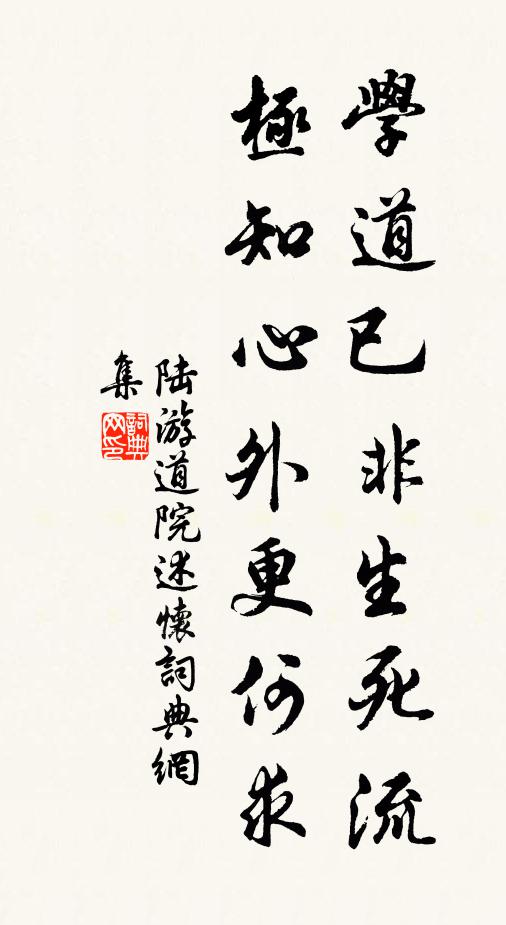 學道已非生死流
極知心外更何求
陆游道院述懷詞典網
集
詞典网印